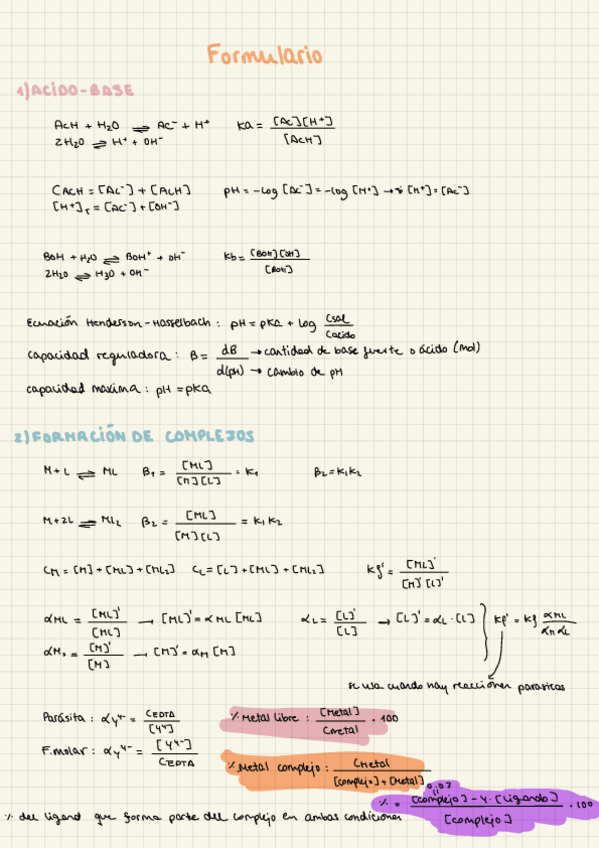 Formulario
1) ACIDO-BASE
AcH + H2O ⇌ Ac⁻ + H⁺ Ka = [Ac][H⁺] / [AcH]
2H2O ⇌ H⁺ + OH⁻
CAcH = [Ac⁻] + [AcH] pH = -log [Ac⁻] = -log [H⁺] → si [H⁺] = [Ac⁻]
[H⁺]T = [Ac⁻] + [OH⁻]
BOH + H2O ⇌ BOH⁺ + OH⁻ Kb = [BOH][OH] / [BOH]
2H2O ⇌ H3O + OH⁻
Ecuación Henderson-Hasselbach: pH = pKa + log Csal / Cacido
capacidad reguladora: B = dB → cantidad de base fuerte o ácido (mol)
d(pH) → cambio de pH
capacidad maxima: pH = pKa
2) FORMACIÓN DE COMPLEJOS
M + L ⇌ ML β1 = [ML] / [M][L] = K1 β2 = K1K2
M + 2L ⇌ ML2 β2 = [ML] / [M][L] = K1 K2
CM = [M] + [ML] + [ML2] CL = [L] + [ML] + [ML2] Kf' = [ML]' / [M]'[L]'
αML = [ML]' / [ML] → [ML]' = αML [ML] αL = [L]' / [L] → [L]' = αL · [L] Kf' = Kf αML / αM αL
αM, = [M]' / [M] → [M]' = αM [M]
se usa cuando hay reacciones parasitas
Parásita: αY⁴⁻ = CEDTA / [Y⁴⁻] % Metal libre: [Metal] / Cmetal · 100
F.molar: αY⁴⁻ = [Y⁴⁻] / CEDTA
% Metal complejo: Cmetal / [complejo] + [Metal]
0,02
% = [complejo] - 4 · [ligando] / [complejo] · 100
% del ligand que forma parte del complejo en ambas condiciones